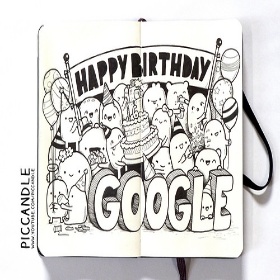 HAPPY BIRTHDAY
GOOGLE
PICCANDLE
WWW.YOUTUBE.COM/PICCANDLE